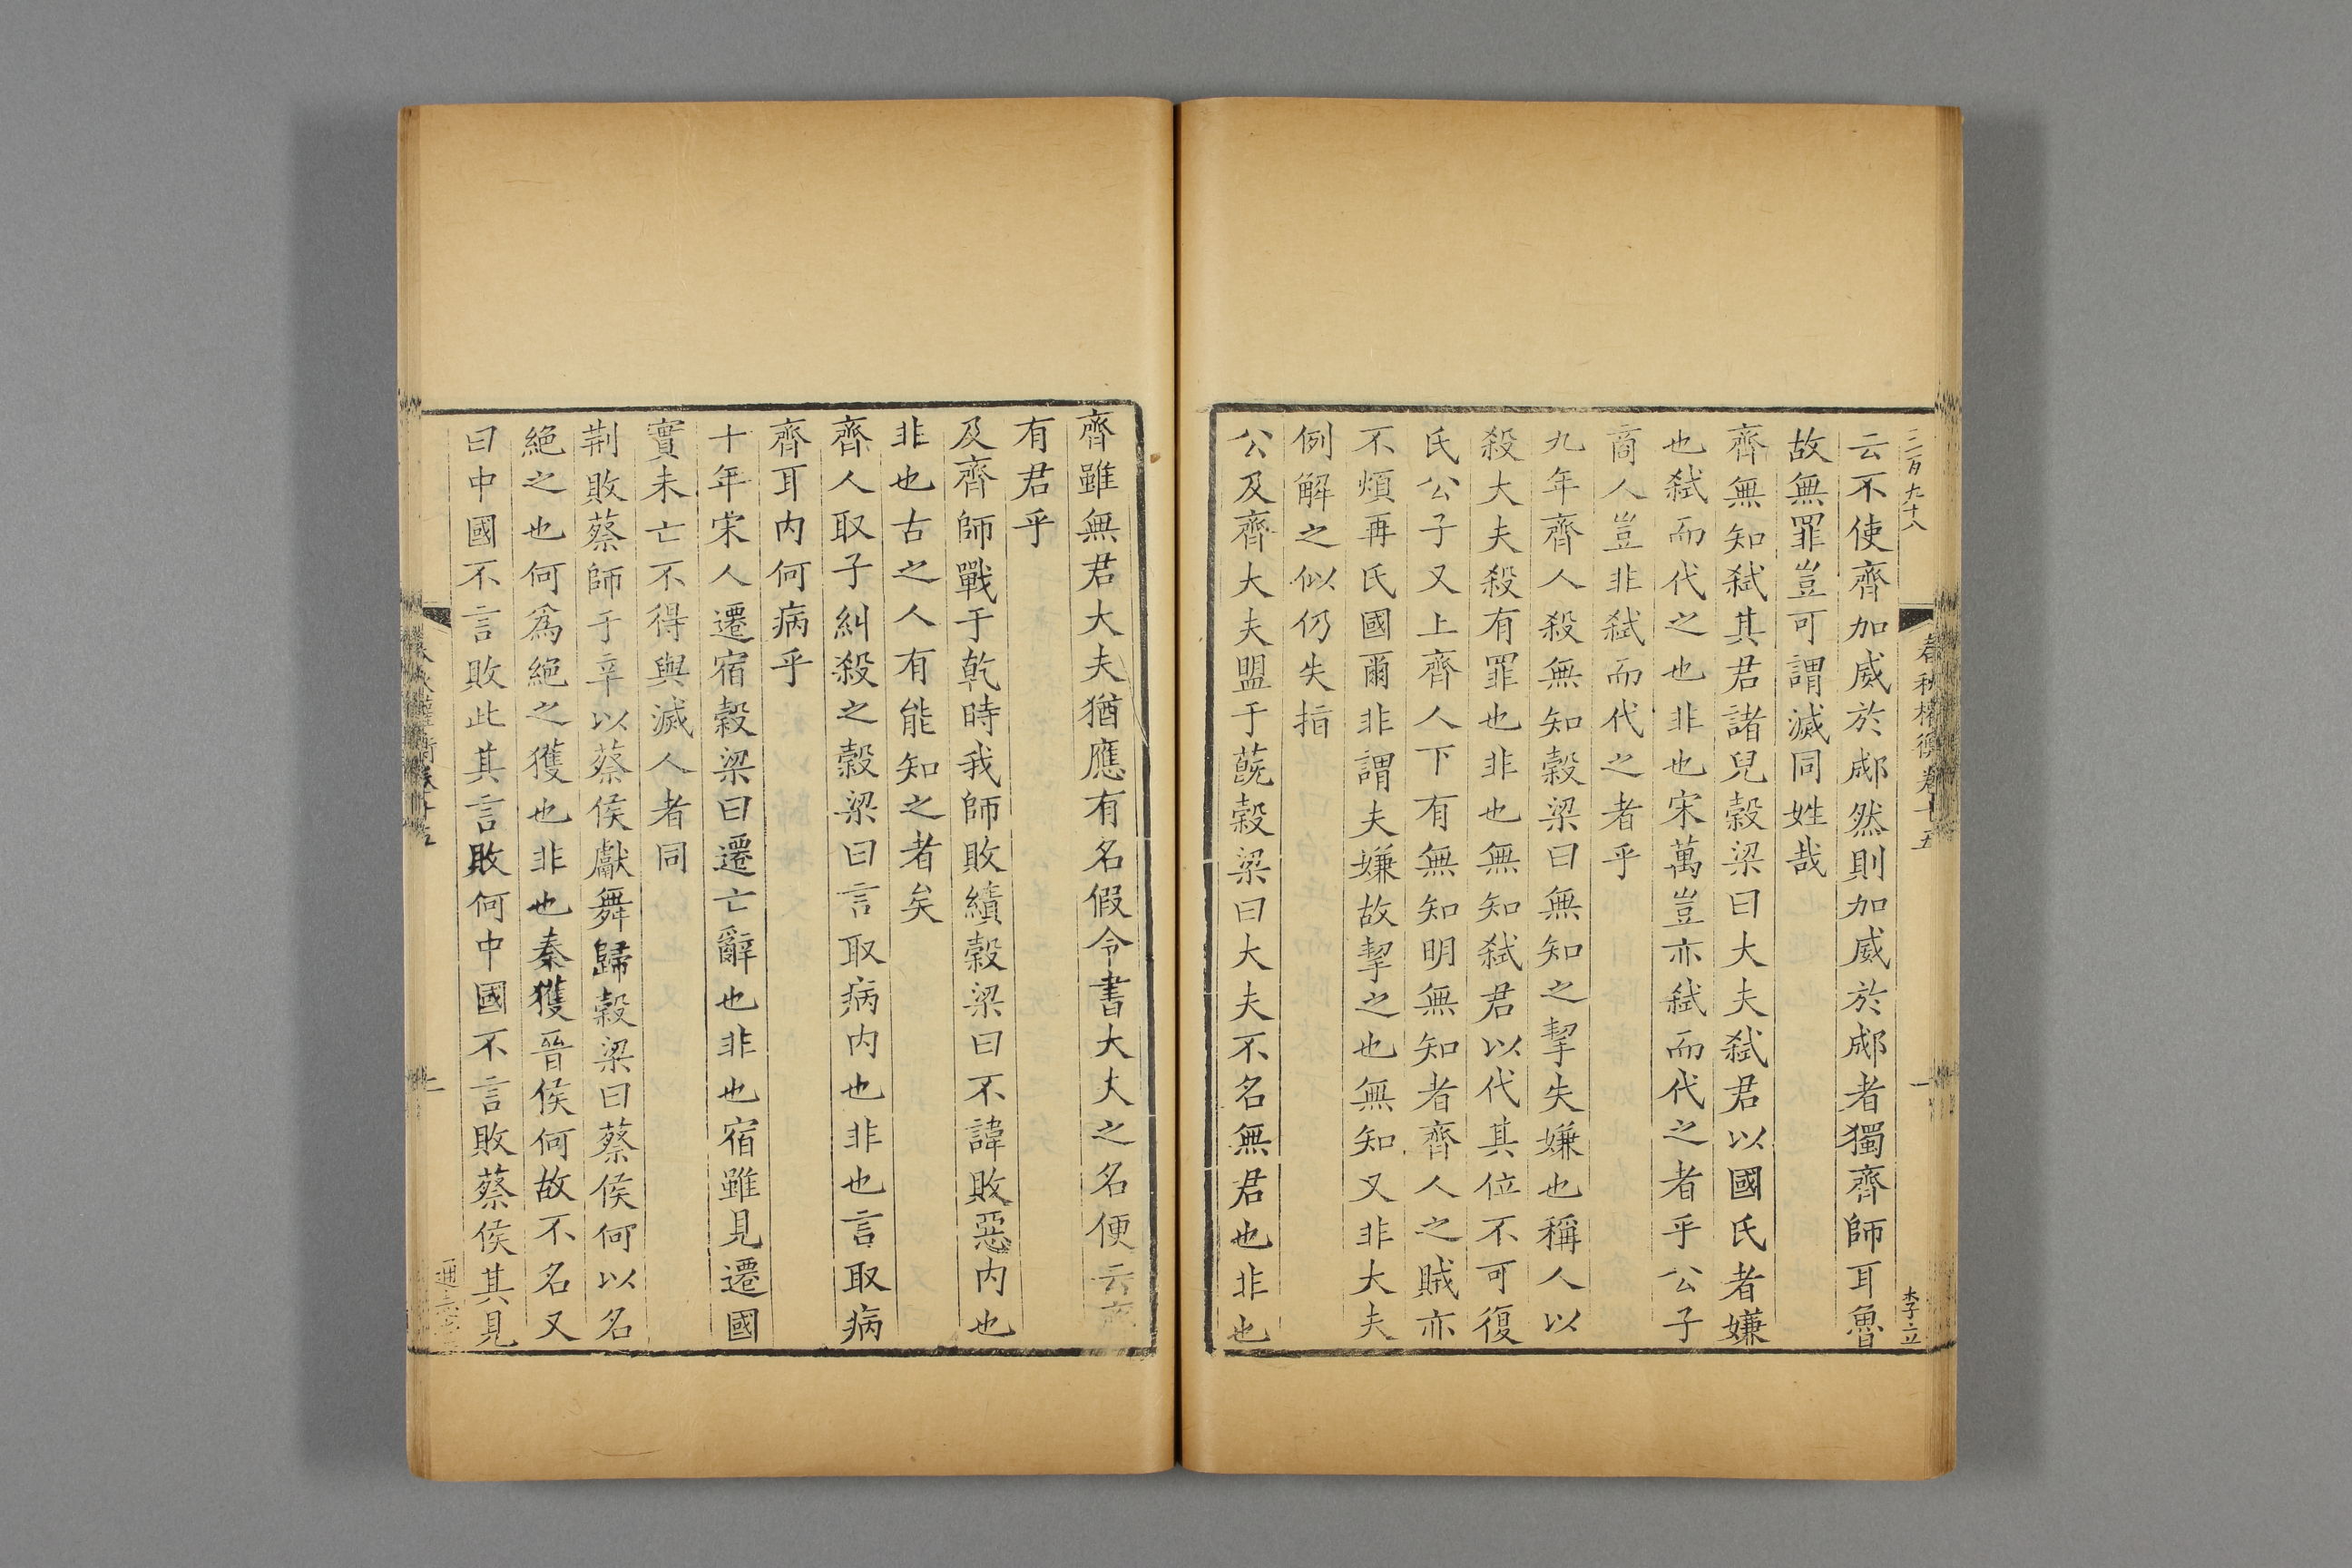 三百九十八
春秋權衡卷十五
一
李立
云不使齊加威於郕然則加威於郕者獨齊師耳魯
故無罪豈可謂滅同姓哉
齊無知弑其君諸兒穀梁曰大夫弑君以國氏者嫌
也弑而代之也非也宋萬豈亦弑而代之者乎公子
商人豈非弑而代之者乎
九年齊人殺無知穀梁曰無知之挈失嫌也稱人以
殺大夫殺有罪也非也無知弑君以代其位不可復
氏公子又上齊人下有無知明無知者齊人之賊亦
不煩再氏國爾非謂夫嫌故挈之也無知又非大夫
例解之似仍失指
公及齊大夫盟于蔇穀梁曰大夫不名無君也非也
齊雖無君大夫猶應有名假令書大夫之名便云
有君乎
及齊師戰于乾時我師敗績穀梁曰不諱敗惡内也
非也古之人有能知之者矣
齊人取子糾殺之穀梁曰言取病内也非也言取病
齊耳内何病乎
十年宋人遷宿穀梁曰遷亡辭也非也宿雖見遷國
實未亡不得與滅人者同
荆敗蔡師于辛以蔡侯獻舞歸穀梁曰蔡侯何以名
絶之也何爲絶之獲也非也秦獲晉侯何故不名又
曰中國不言敗此其言敗何中國不言敗蔡侯其見
春秋權衡卷十五
二